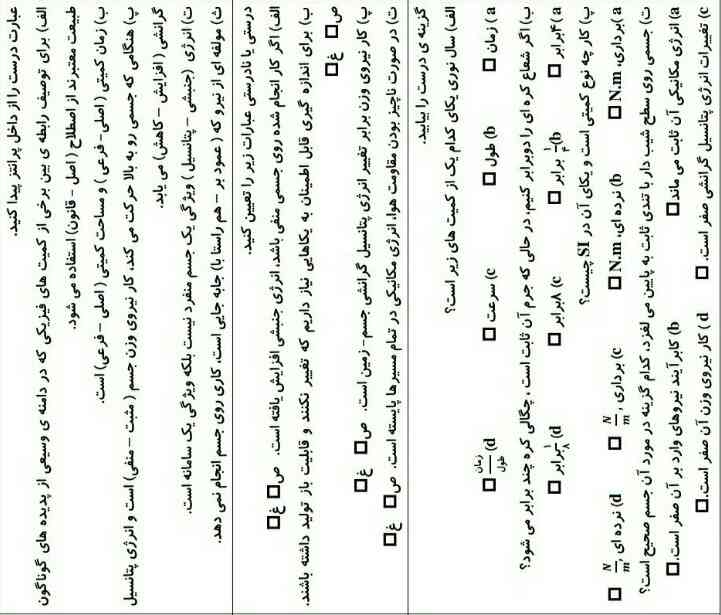 عبارت درست را از داخل پرانتز پیدا کنید.
الف) برای توصیف رابطه ی بین برخی از کمیت های فیزیکی که در دامنه ی وسیعی از پدیده های گوناگون
طبیعت معتبرند از اصطلاح ( اصل - قانون) استفاده می شود.
ب) زمان کمیتی ( اصلی- فرعی ) و مساحت کمیتی ( اصلی – فرعی) است.
پ) هنگامی که جسمی رو به بالا حرکت می کند، کار نیروی وزن جسم ( مثبت – منفی) است و انرژی پتانسیل
گرانشی ( افزایش - کاهش) می یابد.
ت) انرژی (جنبشی – پتانسیل ) ویژگی یک جسم منفرد نیست بلکه ویژگی یک سامانه است.
ث) مولفه ای از نیرو که ( عمود بر – هم راستا با) جابه جایی است، کاری روی جسم انجام نمی دهد.
درستی یا نادرستی عبارات زیر را تعیین کنید.
الف) اگر کار انجام شده روی جسمی منفی باشد، انرژی جنبشی افزایش یافته است. ص□ غ□
ب) برای اندازه گیری قابل اطمینان به یکاهایی نیاز داریم که تغییر نکنند و قابلیت باز تولید داشته باشند.
ص□ غ□
پ) کار نیروی وزن برابر تغییر انرژی پتانسیل گرانشی جسم- زمین است. ص□ غ□
ت) در صورت ناچیز بودن مقاومت هوا، انرژی مکانیکی در تمام مسیرها پایسته است. ص□ غ□
گزینه ی درست را بیابید.
الف) سال نوری یکای کدام یک از کمیت های زیر است؟
a) زمان □ b) طول □ c) سرعت □ d) زمان/طول □
ب) اگر شعاع کره ای را دوبرابر کنیم، در حالی که جرم آن ثابت است ، چگالی کره چند برابر می شود؟
a) ۴برابر □ b) ۱/۴ برابر □ c) ۸برابر □ d) ۱/۸برابر □
پ) کار چه نوع کمیتی است و یکای آن در SI چیست؟
a) برداری، N.m □ b) نرده ای، N.m □ c) برداری ، N/m □ d) نرده ای ، N/m □
ت) جسمی روی سطح شیب دار با تندی ثابت به پایین می لغزد، کدام گزینه در مورد آن جسم صحیح است؟
a) انرژی مکانیکی آن ثابت می ماند□ b) کار برآیند نیروهای وارد بر آن صفر است.□
c) تغییرات انرژی پتانسیل گرانشی صفر است. □ d ) کار نیروی وزن آن صفر است.□